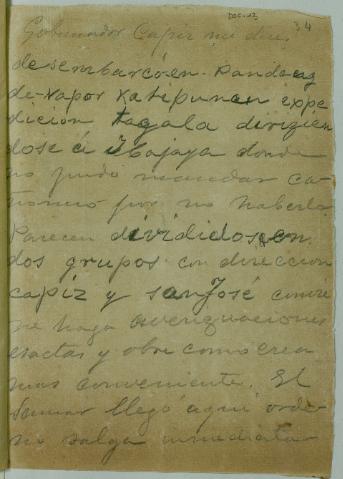 DOC-12
34
Gobernador Capiz me dice
desembarcó en Pandang
de vapor Katipunan expe
dición tagala dirigien
dose á Ibajaya donde
no pudo mandar ca-
por no haberlo
Parecen divididos en
dos grupos con direccion
capiz y San José convie
ne haga averiguaciones
exactas y obre como crea
mas conveniente. El
Samar llegó aqui orde-
no salga inmediata-